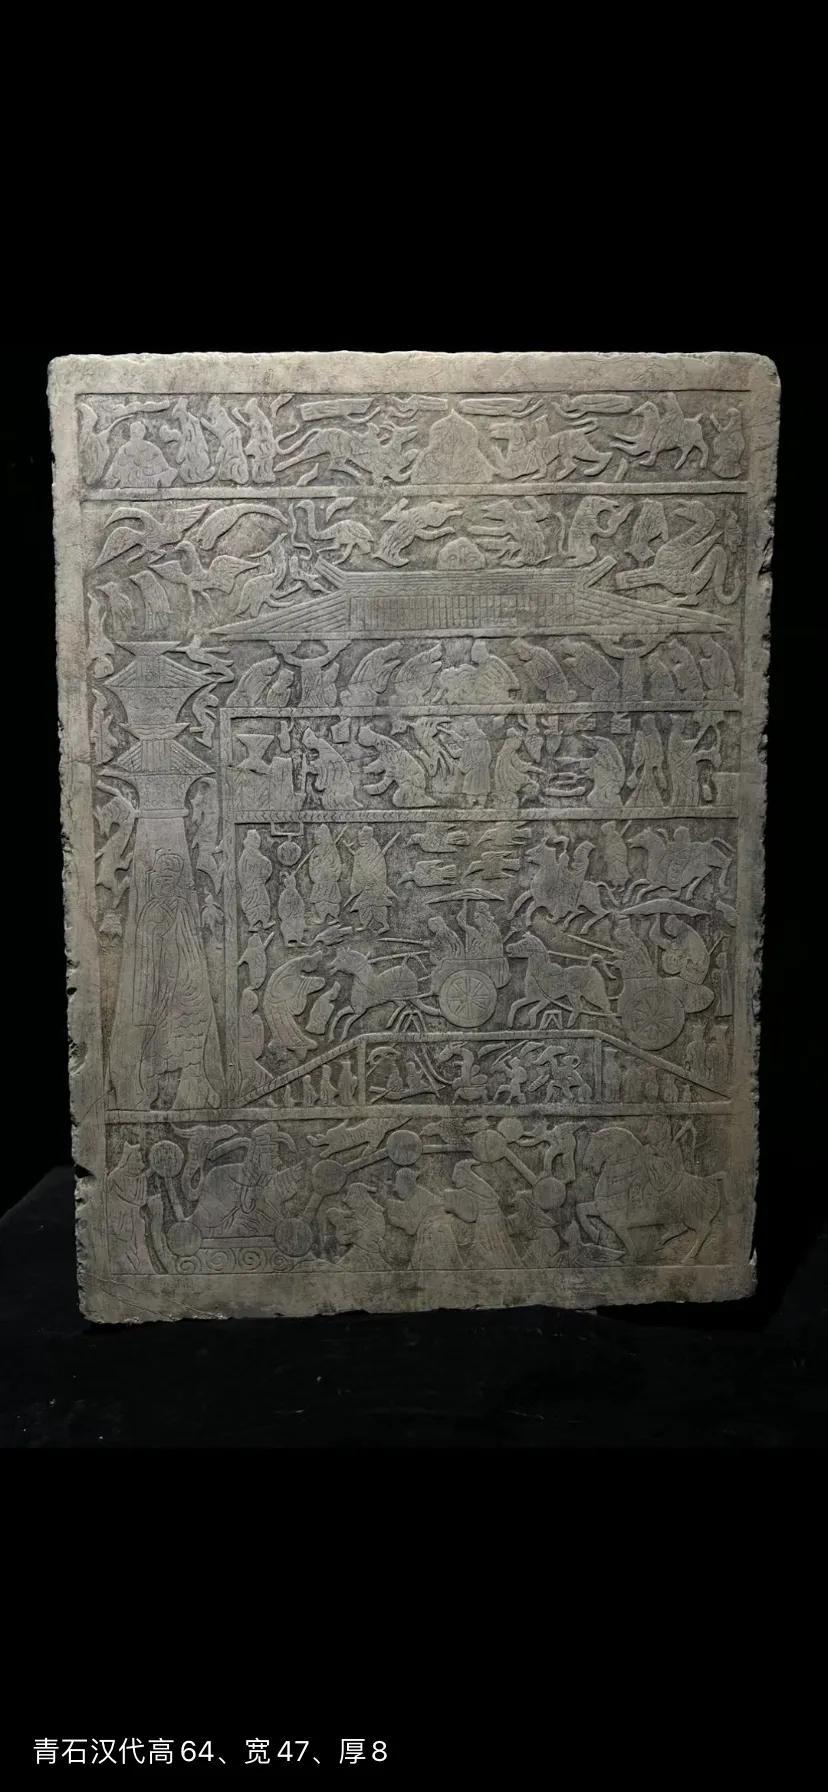 青石汉代高64、宽47、厚8